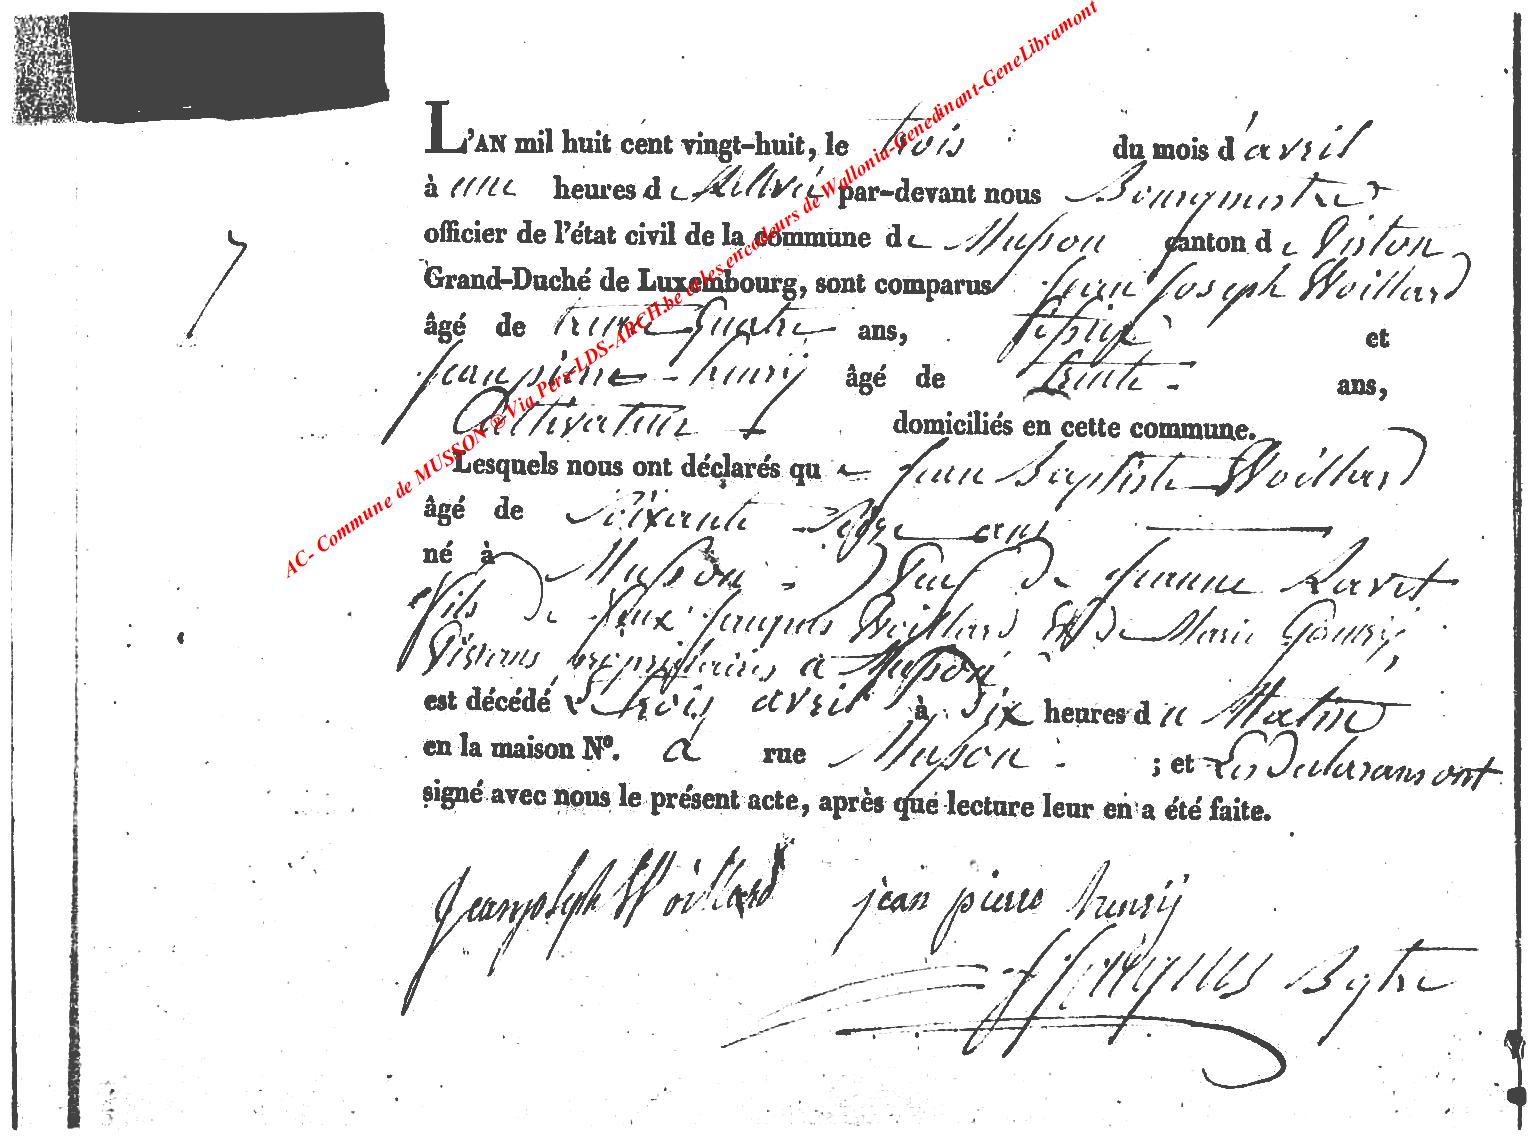 L'AN mil huit cent vingt-huit, le trois du mois d'avril
à une heures de Rellvée par-devant nous Bourgmestre
officier de l'état civil de la commune de Musson canton de Virton
Grand-Duché de Luxembourg, sont comparus Jean Joseph Woillard
âgé de trente Quatre ans, et
Jean pierre henrÿ âgé de trente ans,
Cultivateur domiciliés en cette commune.
Lesquels nous ont déclarés que Jean Baptiste Woillard
âgé de Soixante ans
né à Musson de Jeanne Ravet
fils de feux Jacques Woillard Et de Marie Goury
Vivans propriétaires à Musson
est décédé Le trois avril à Six heures du Matin
en la maison Nº. à rue Musson ; et Les Déclarans ont
signé avec nous le présent acte, après que lecture leur en a été faite.
Jeanjoseph Woillard jean pierre henrÿ
Bgtre
7
AC- Commune de MUSSON ® Via Pers-LDS-ARCH.be et les encodeurs de Wallonia-Genedinant-GeneLibramont